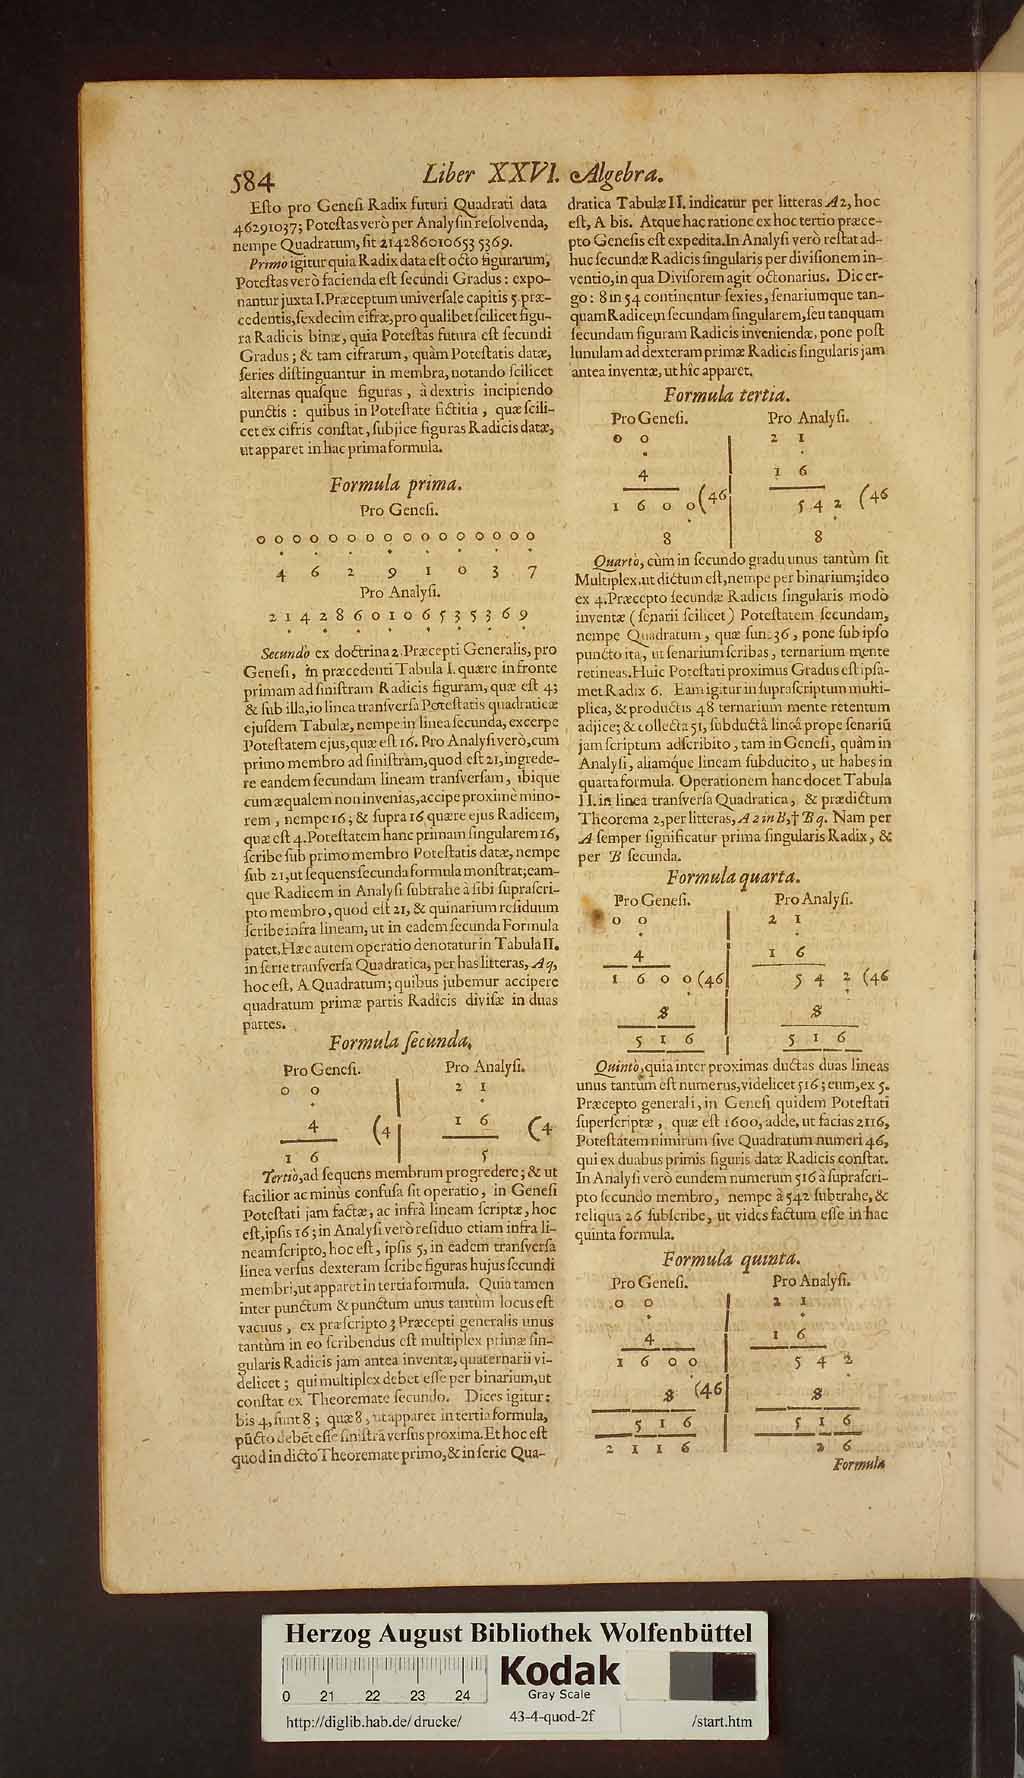 584
Liber XXVI. Algebra.
Eſto pro Geneſi Radix futuri Quadrati data
46291037; Poteſtas verò per Analyſin reſolvenda,
nempe Quadratum, ſit 2142860106535369.
Primò igitur quia Radix data eſt octo figurarum,
Poteſtas verò facienda eſt ſecundi Gradus: expo-
nantur juxta I. Præceptum univerſale capitis 5 præ-
cedentis, ſexdecim cifræ, pro qualibet ſcilicet figu-
ra Radicis binæ, quia Poteſtas futura eſt ſecundi
Gradus; & tam cifratum, quàm Poteſtatis datæ,
ſeries diſtinguantur in membra, notando ſcilicet
alternas quaſque figuras, à dextris incipiendo
punctis: quibus in Poteſtate fictitia, quæ ſcili-
cet ex cifris conſtat, ſubjice figuras Radicis datæ,
ut apparet in hac prima formula.
Formula prima.
Pro Geneſi.
0 0 0 0 0 0 0 0 0 0 0 0 0 0 0 0
4 6 2 9 1 0 3 7
Pro Analyſi.
2 1 4 2 8 6 0 1 0 6 5 3 5 3 6 9
Secundò ex doctrina 2. Præcepti Generalis, pro
Geneſi, in præcedenti Tabula I. quære in fronte
primam ad ſiniſtram Radicis figuram, quæ eſt 4;
& ſub illa, in linea tranſverſa Poteſtatis quadraticæ
ejuſdem Tabulæ, nempe in linea ſecunda, excerpe
Poteſtatem ejus, quæ eſt 16. Pro Analyſi verò, cum
primo membro ad ſiniſtram, quod eſt 21, ingrede-
re eandem ſecundam lineam tranſverſam, ibique
cum æqualem non invenias, accipe proximè mino-
rem, nempe 16; & ſupra 16 quære ejus Radicem,
quæ eſt 4. Poteſtatem hanc primam ſingularem 16,
ſcribe ſub primo membro Poteſtatis datæ, nempe
ſub 21, ut ſequens ſecunda formula monſtrat; eam-
que Radicem in Analyſi ſubtrahe à ſibi ſupraſcri-
pto membro, quod eſt 21, & quinarium reſiduum
ſcribe infra lineam, ut in eadem ſecunda Formula
patet. Hæc autem operatio denotatur in Tabula II.
in ſerie tranſverſa Quadratica, per has litteras, A q,
hoc eſt, A Quadratum; quibus jubemur accipere
quadratum primæ partis Radicis diviſæ in duas
partes.
Formula ſecunda.
Pro Geneſi. Pro Analyſi.
0 0 2 1
4 (4 1 6 (4
1 6 5
Tertiò, ad ſequens membrum progredere; & ut
facilior ac minùs confuſa ſit operatio, in Geneſi
Poteſtati jam factæ, ac infrà lineam ſcriptæ, hoc
eſt, ipſis 16; in Analyſi verò reſiduo etiam infra li-
neam ſcripto, hoc eſt, ipſis 5, in eadem tranſverſa
linea verſus dexteram ſcribe figuras hujus ſecundi
membri, ut apparet in tertia formula. Quia tamen
inter punctum & punctum unus tantùm locus eſt
vacuus, ex præſcripto 3 Præcepti generalis unus
tantùm in eo ſcribendus eſt multiplex primæ ſin-
gularis Radicis jam antea inventæ, quaternarii vi-
delicet; qui multiplex debet eſſe per binarium, ut
conſtat ex Theoremate ſecundo. Dices igitur:
bis 4, ſunt 8; quæ 8, ut apparet in tertia formula,
pũcto debẽt eſſe ſiniſtrã verſus proxima. Et hoc eſt
quod in dicto Theoremate primo, & in ſerie Qua-
dratica Tabulæ II. indicatur per litteras A 2, hoc
eſt, A bis. Atque hac ratione ex hoc tertio præce-
pto Geneſis eſt expedita. In Analyſi verò reſtat ad-
huc ſecundæ Radicis ſingularis per diviſionem in-
ventio, in qua Diviſorem agit octonarius. Dic er-
go: 8 in 54 continentur ſexies, ſenariumque tan-
quam Radicem ſecundam ſingularem, ſeu tanquam
ſecundam figuram Radicis inveniendæ, pone poſt
lunulam ad dexteram primæ Radicis ſingularis jam
antea inventæ, ut hîc apparet.
Formula tertia.
Pro Geneſi. Pro Analyſi.
0 0 2 1
4 1 6
1 6 0 0 (46 5 4 2 (46
8 8
Quartò, cùm in ſecundo gradu unus tantùm ſit
Multiplex, ut dictum eſt, nempe per binarium; ideò
ex 4. Præcepto ſecundæ Radicis ſingularis modò
inventæ (ſenarii ſcilicet) Poteſtatem ſecundam,
nempe Quadratum, quæ ſunt 36, pone ſub ipſo
puncto ita, ut ſenarium ſcribas, ternarium mente
retineas. Huic Poteſtati proximus Gradus eſt ipſa-
met Radix 6. Eam igitur in ſupraſcriptum multi-
plica, & productis 48 ternarium mente retentum
adjice; & collecta 51, ſubductâ lineâ prope ſenariũ
jam ſcriptum adſcribito, tam in Geneſi, quàm in
Analyſi, aliamque lineam ſubducito, ut habes in
quarta formula. Operationem hanc docet Tabula
II. in linea tranſverſa Quadratica, & prædictum
Theorema 2, per litteras, A 2 in B, † B q. Nam per
A ſemper ſignificatur prima ſingularis Radix, &
per B ſecunda.
Formula quarta.
Pro Geneſi. Pro Analyſi.
0 0 2 1
4 1 6
1 6 0 0 (46 5 4 2 (46
8 8
5 1 6 5 1 6
Quintò, quia inter proximas ductas duas lineas
unus tantùm eſt numerus, videlicet 516; eum, ex 5.
Præcepto generali, in Geneſi quidem Poteſtati
ſuperſcriptæ, quæ eſt 1600, adde, ut facias 2116,
Poteſtatem nimirum ſive Quadratum numeri 46,
qui ex duabus primis figuris datæ Radicis conſtat.
In Analyſi verò eundem numerum 516 à ſupraſcri-
pto ſecundo membro, nempe à 542 ſubtrahe, &
reliqua 26 ſubſcribe, ut vides factum eſſe in hac
quinta formula.
Formula quinta.
Pro Geneſi. Pro Analyſi.
0 0 2 1
4 1 6
1 6 0 0 5 4 2
8 (46 8
5 1 6 5 1 6
2 1 1 6 2 6
Formula
Herzog August Bibliothek Wolfenbüttel
Kodak
Gray Scale
0 21 22 23 24
http://diglib.hab.de/drucke/ 43-4-quod-2f /start.htm